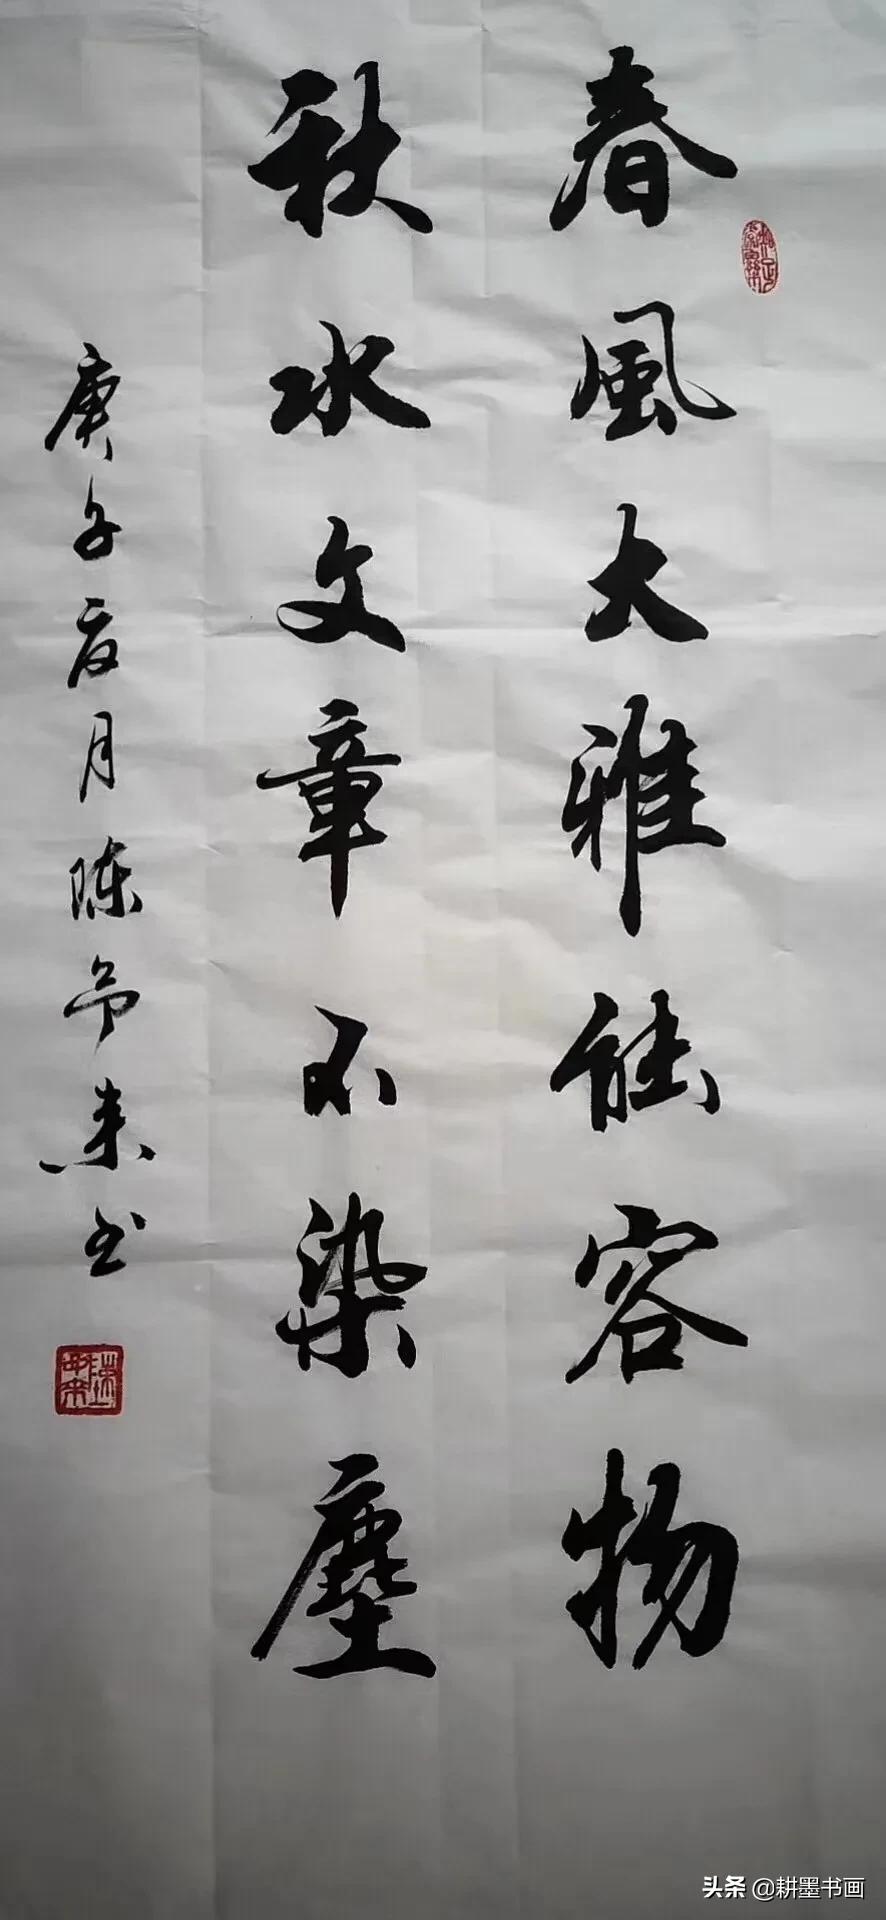 春風大雅能容物
秋水文章不染塵
庚子夏月陳予來书
头条 @耕墨书画